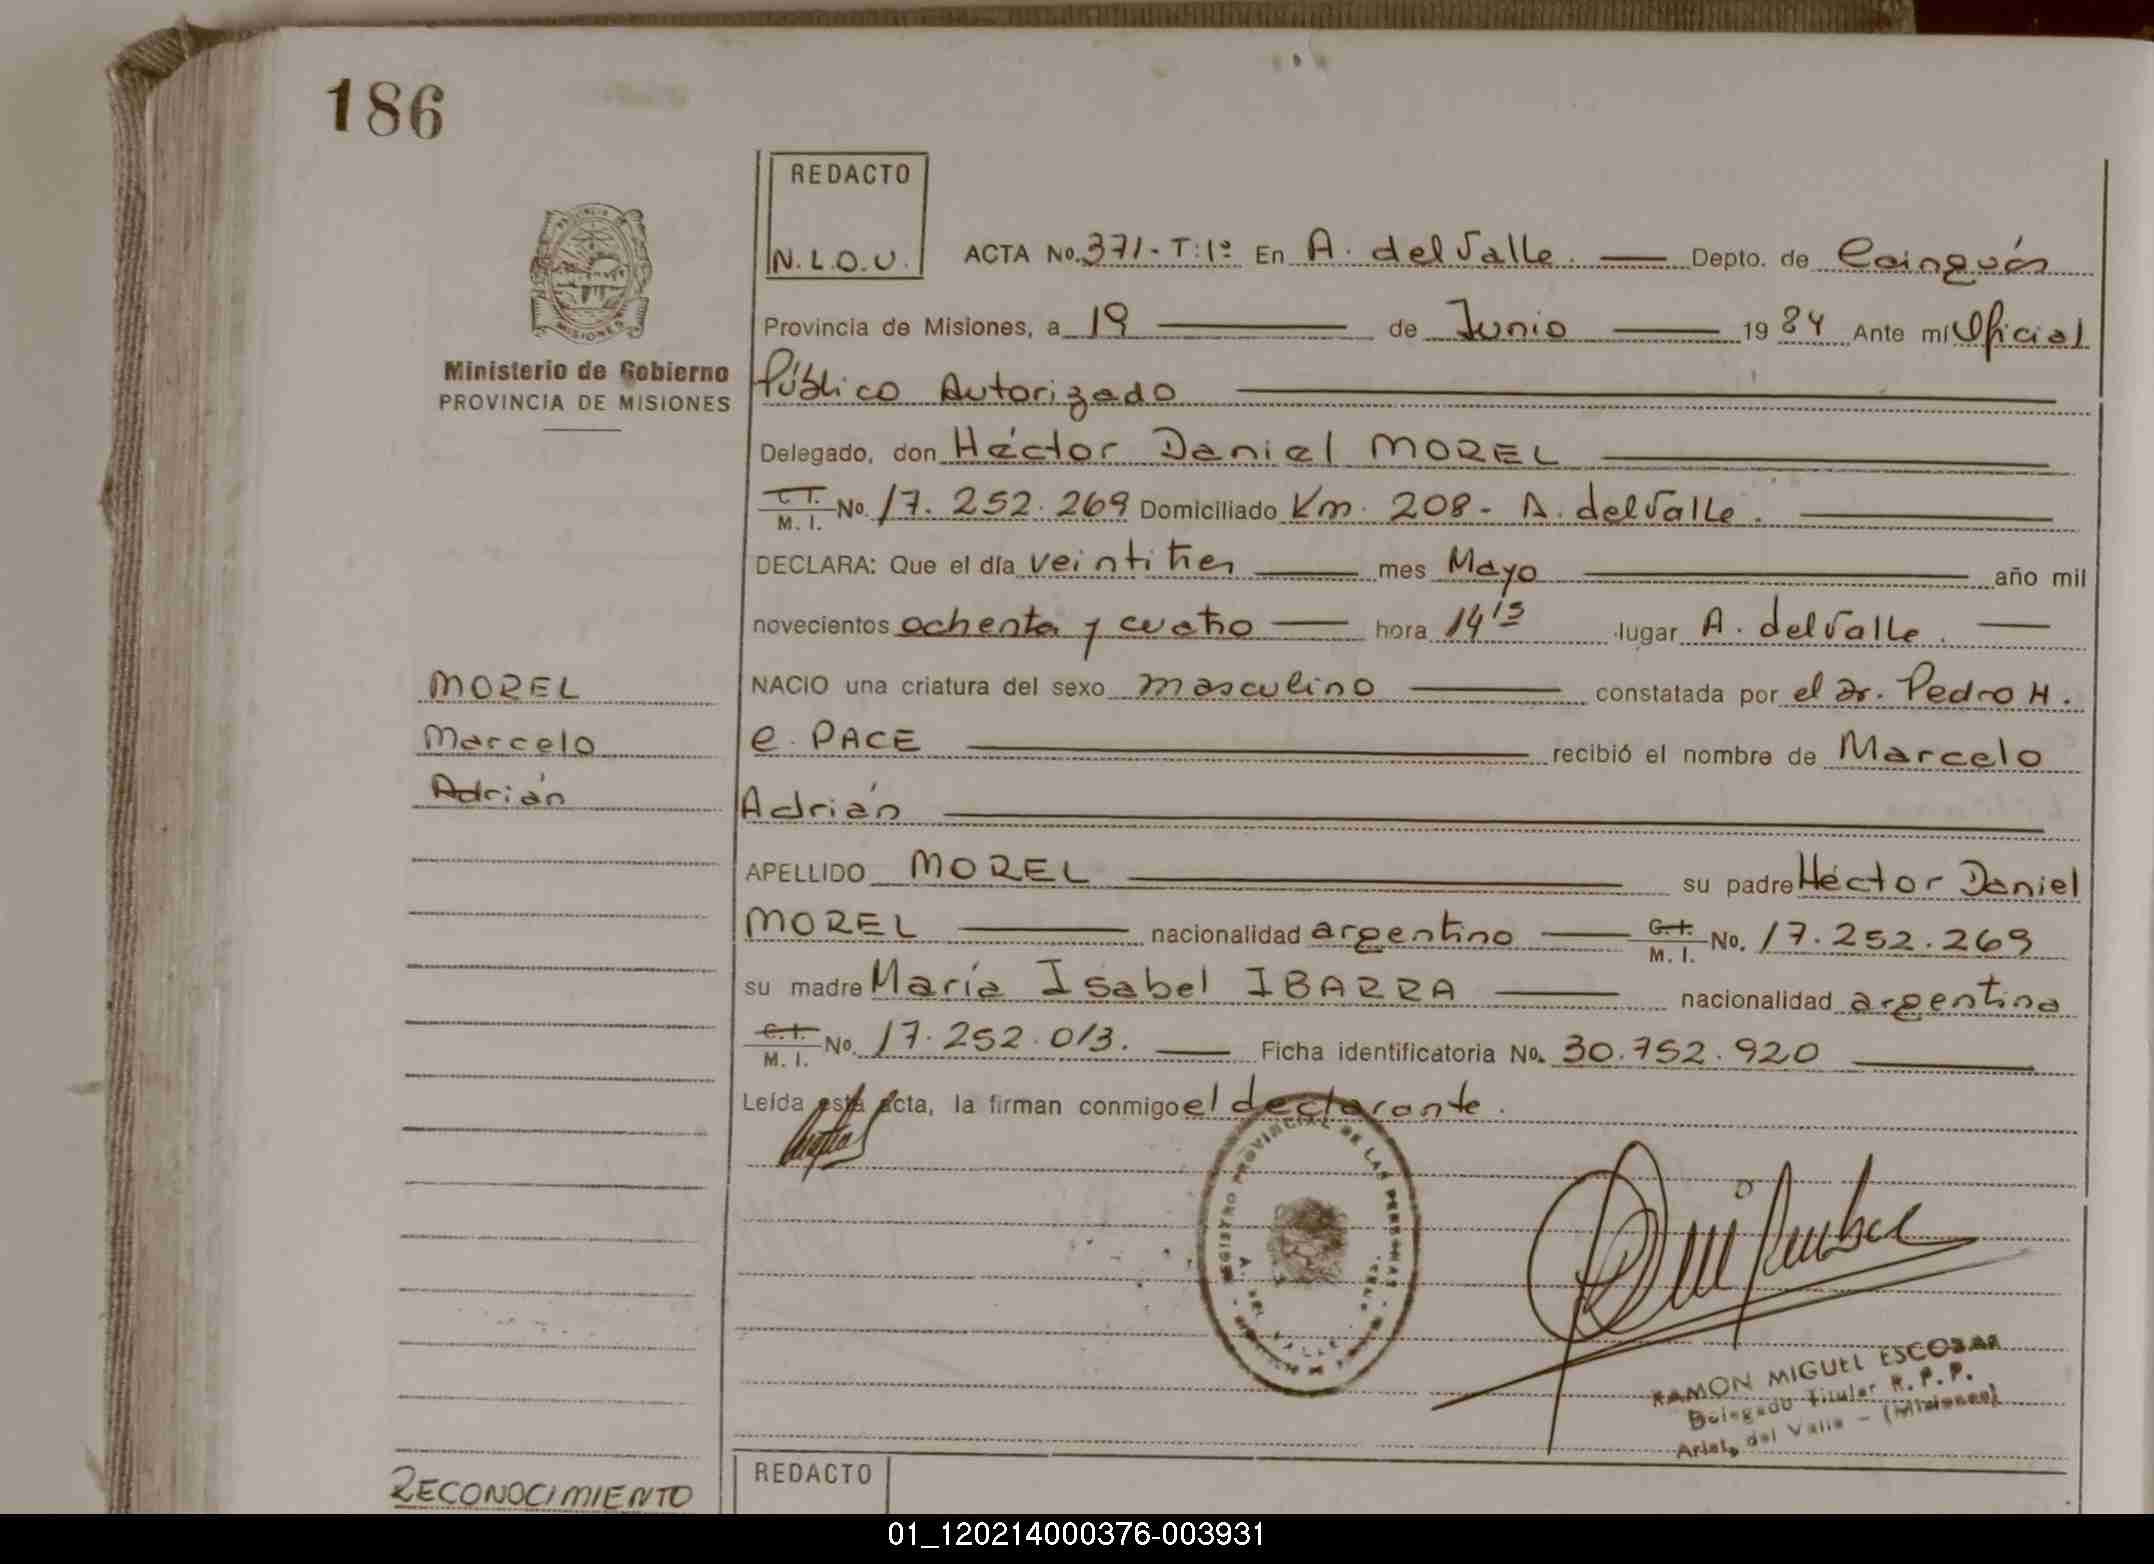 186
REDACTO
N.L.O.U.
ACTA No. 371-T:1º En A. del Valle. Depto. de Cainguás
Provincia de Misiones, a 19 de Junio 1984 Ante mí Oficial
Ministerio de Gobierno
PROVINCIA DE MISIONES
Público Autorizado
Delegado, don Héctor Daniel MOREL
C.I. M. I. No. 17.252.269 Domiciliado Km. 208- A. del Valle.
DECLARA: Que el día veintitres mes Mayo año mil
novecientos ochenta y cuatro hora 14 15 lugar A. del Valle.
MOREL
Marcelo
Adrián
NACIO una criatura del sexo masculino constatada por el Dr. Pedro H.
C. PACE recibió el nombre de Marcelo
Adrián
APELLIDO MOREL su padre Héctor Daniel
MOREL nacionalidad argentino C.I. M. I. No. 17.252.269
su madre María Isabel IBARRA nacionalidad argentina
C.I. M. I. No. 17.252.013. Ficha identificatoria No. 30.752.920
Leída esta acta, la firman conmigo el declarante.
REGISTRO PROVINCIAL DE LAS PERSONAS
A. DEL VALLE
RAMON MIGUEL ESCOBAR
Delegado Titular R. P. P.
Arist. del Valle - (Misiones)
RECONOCIMIENTO
REDACTO
01_120214000376-003931